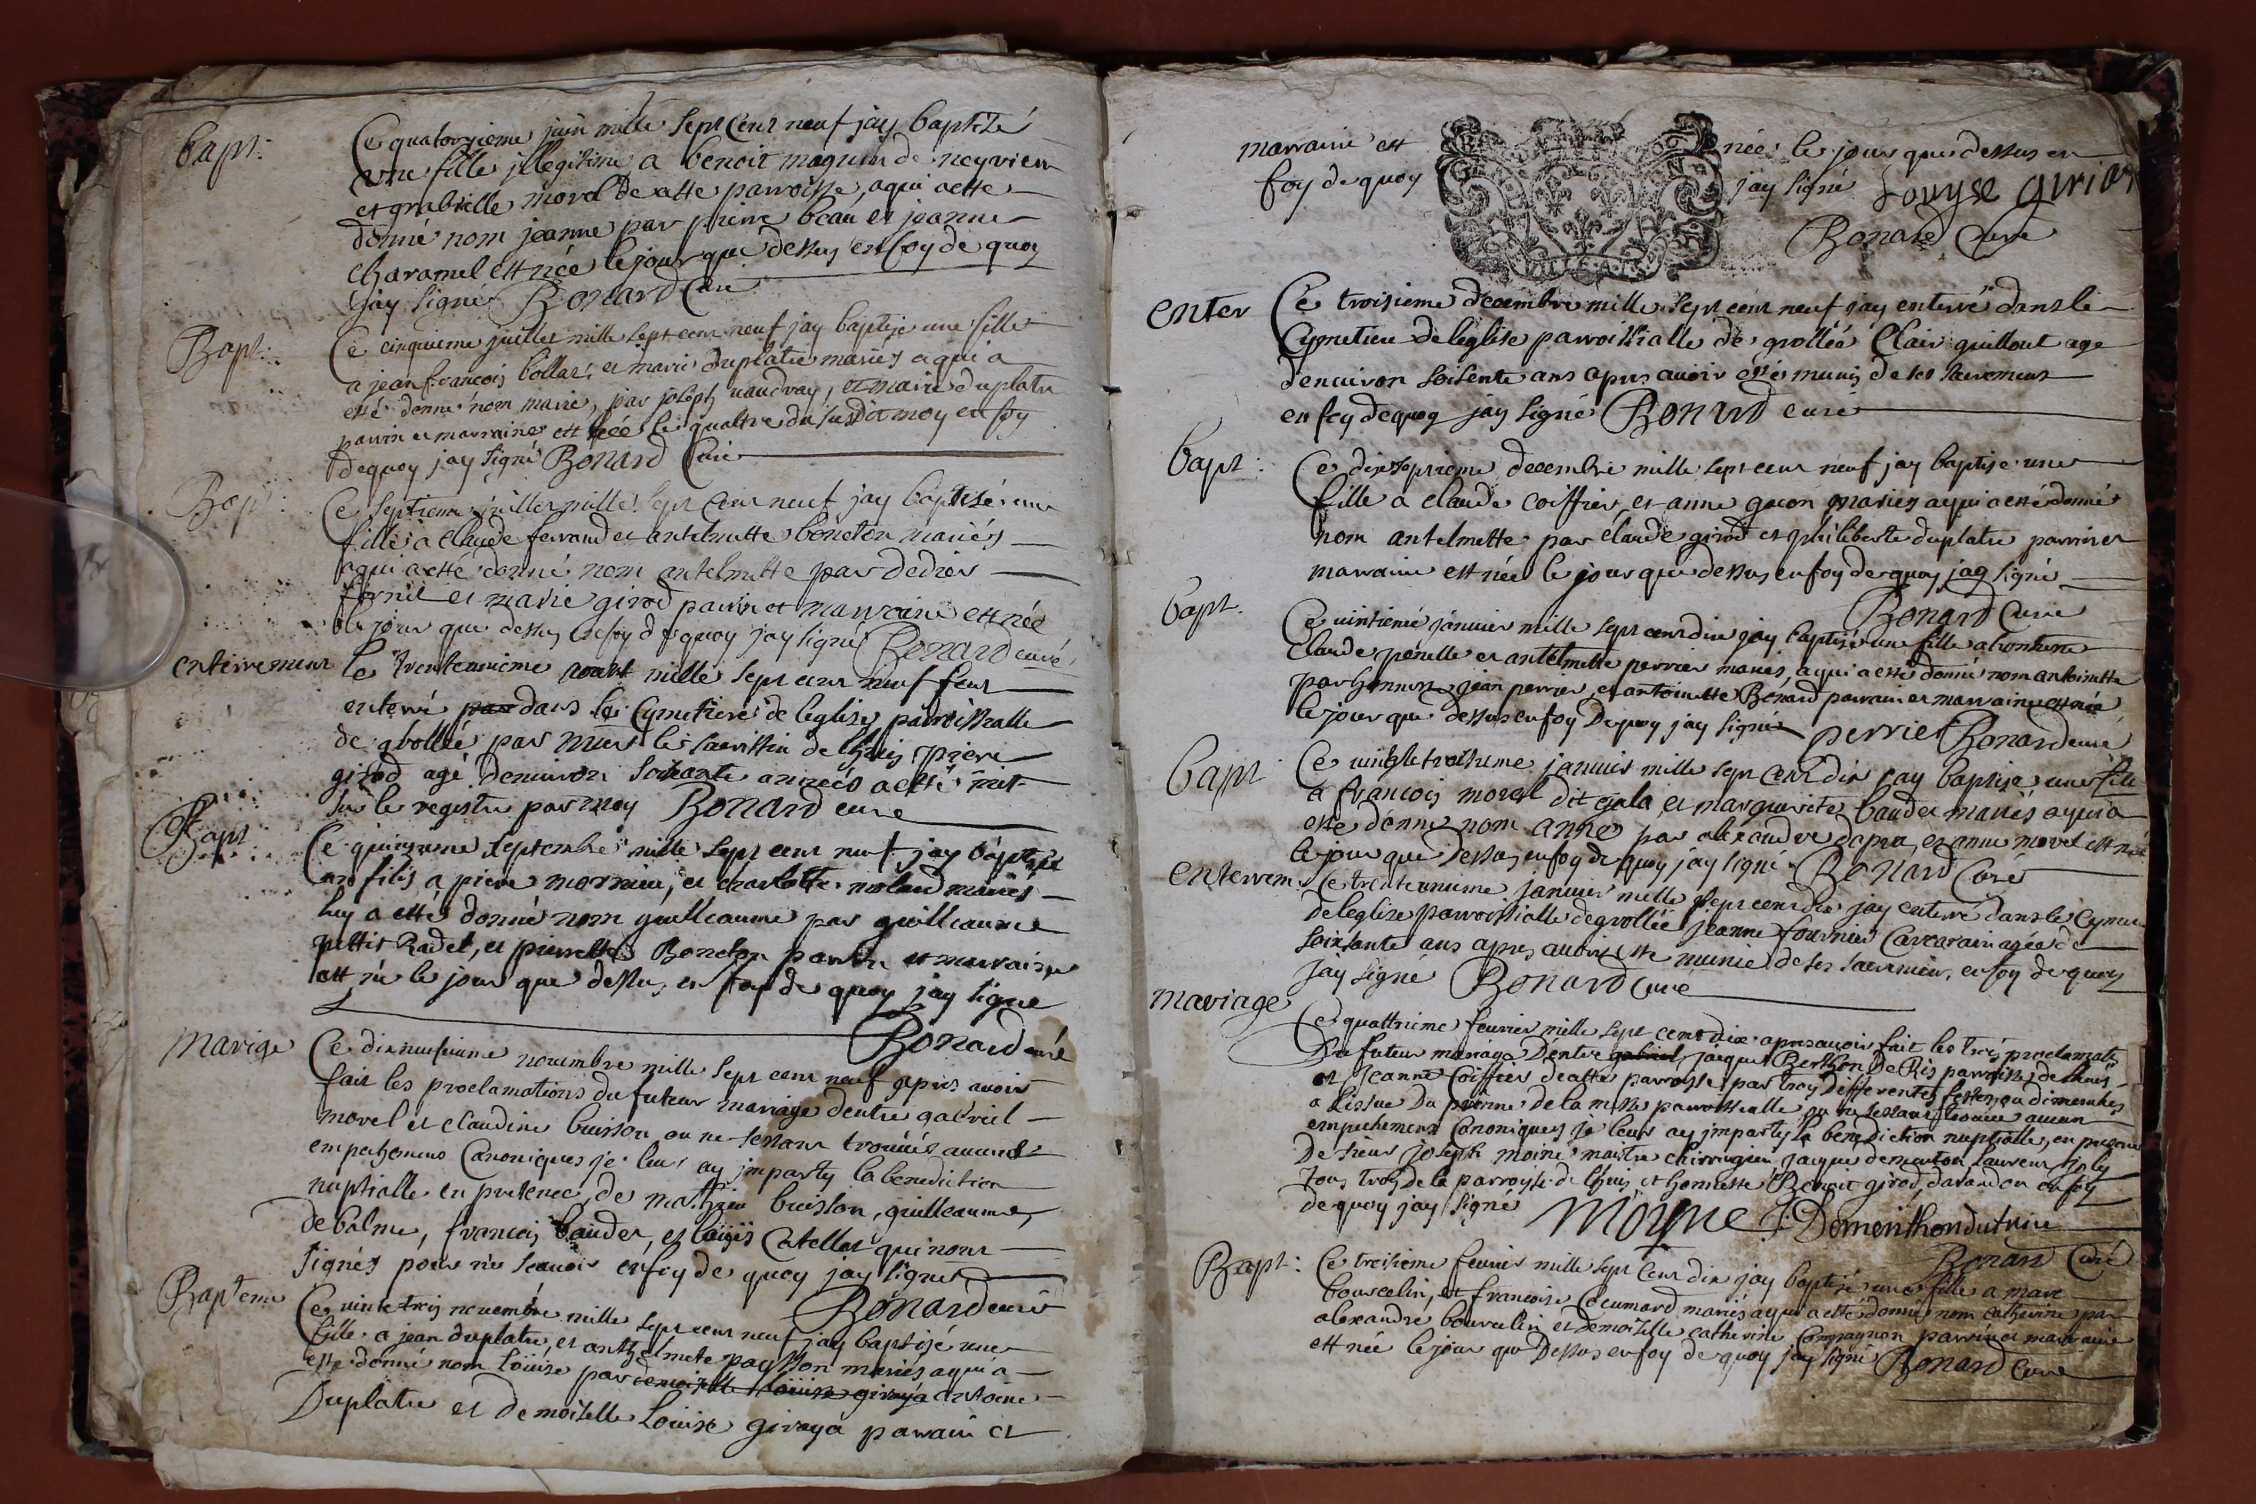 bapt:
Ce quatorzieme juin mille sept cent neuf jay baptizé
une fille jllegitime a benoit magnin de neyrieu
et gabrielle morel de cette parroisse, aqui a esté
donné nom jeanne par pierre beau et jeanne
charamel est née le jour que dessus en foy de quoy
jay signé Bonard Curé
Bapt:
Ce cinquieme juillet mille sept cent neuf jay baptisé une fille
a jean francois bollar, et marie duplatre mariés a qui a
esté donné nom marie, par joseph vaudray, et marie duplatre
parrin et marraine est née le quattre du susdit moy en foy
dequoy jay signé Bonard Curé
Bapt:
Ce septieme juillet mille sept cent neuf jay baptisé une
fille a Claude ferrand et antelmette boneton mariés
aqui a esté donné nom antelmette par dedier
fornier et marie girod parrin et marraine est née
le jour que dessus en foy de quoy jay signé Bonard curé
enterrement
le trenteunieme aoust mille sept cent neuf feut
enterré par dans le Cymetiere de leglise parroissialle
de grollée par mier le sacristin de lhuis pierre
girod agé denuiron soixante années a esté mit
sur le registre par moy Bonard curé
Bapt
Ce quinzieme septembre mille sept cent neuf jay baptisé
un fils a pierre mornieu, et charlotte molard mariés
luy a esté donné nom guilleaume par guilleaume
pettit Radet, et pierrette Boneton parrin et marraine
est né le jour que dessus en foy de quoy jay signé
Bonard curé
Mariage
Ce dixneufuieme nouembre mille sept cent neuf apres auoir
fait les proclamations du futeur mariage dentre gabriel
morel et claudine buisson ou ne sestant trouués aucuns
empechemens Canoniques je leur ay jmparty la benediction
nuptialle en presence de mathieu buisson, guilleaume
debalme, francois bauder, et loüis Catellet qui nont
signés pour ne scauoir en foy de quoy jay signé
Bonard curé
Bapteme
Ce vintetrois nouembre mille sept cent neuf jay baptisé une
fille a jean duplatre, et anthelmete paysson mariés aqui a
esté donné nom loüise par demoiselle loüise giraya antoine
Duplatre et demoiselle Loüise giraya parrain et
marraine est née le jour que dessus en
foy de quoy jay signé Louyse giria
Bonard Curé
enter
Ce troisieme decembre mille sept cent neuf jay enterré dans le
Cymetiere de leglise parroissialle de grolléé Clair guillout agé
denuiron soisente ans apres auoir esté munis de ses sacremens
en foy dequoy jay signé Bonard curé
bapt:
Ce dixseptieme decembre mille sept cent neuf jay baptisé une
fille a claude coiffier, et anne gacon mariés aqui a esté donné
nom antelmette par claude girod et philiberte duplatre parrin et
marraine est née le jour que dessus en foy de quoy jay signé
Bonard Curé
bapt.
Ce vintieme januier mille sept cent dix jay baptisé une fille a honneste
Claude perelle et antelmette perrier mariés, aqui a esté donné nom antoinette
par honneste jean perrier, et antoinette Bonard parrain et marraine est née
le jour que dessus en foy Dequoy jay signé perrier Bonard curé
bapt
Ce vingtetroisieme januier mille sept cent dix jay baptisé une fille
a francois morel dit gala, et marguerite bauder mariés aqui a
esté donné nom anne par alexandre dapra, et anne morel est née
le jour que dessus en foy de quoy jay signé Bonard Curé
enterrem
Ce trenteunieme januier mille sept cent dix jay enterré dans le Cymet
de leglise parroissialle degrollée jeanne fournier Carcarain agée de
soixsante ans apres auoir esté munie de ses sacremens, en foy de quoy
jay signé Bonard Curé
mariage
Ce quattrieme feurier mille sept cent dix apres auoir fait les trois proclamatio
Du futeur mariage Dentre gabriel jacques Berthon De Ris parroisse de lhuis
et Jeanne Coiffier de cette parroisse par troy Differentes festes, ou dimenches
a lissue Du prône De la messe parroissialle ou ne sestant trouué aucun
empechement Canoniques Je leurs ay jmparty la benediction nuptialle, en presence
De sieur joseph moine maitre chirrugien, Jacque dementon laurens joly
tous trois de la parroisse de lhuis et honneste Benoit girod, darandon en foy
de quoy jay signé Moyne J. Dementhondutrin
Bonard Curé
Bapt:
Ce treisieme feurier mille sept cent dix jay baptisé une fille a marc
bourcelin, et francoise Coeumard mariés aqui a esté donné nom catherine par
alexandre bourcelin et demoiselle catherine Compagnon parrin et marraine
est née le jour que Dessus en foy de quoy jay signé Bonard Curé